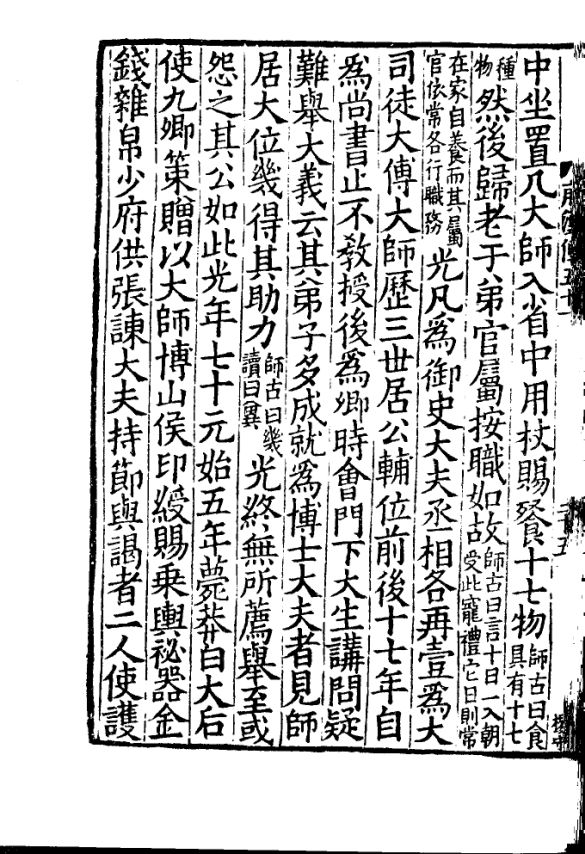 中坐置几大師入省中用杖賜餐十七物師古曰食具有十七種物
然後歸老于弟官屬按職如故師古曰言十日一入朝受此寵禮它日則常
在家自養而其屬官依常各行職務光凡爲御史大夫丞相各再壹爲大
司徒大傅大師歷三世居公輔位前後十七年自
爲尚書止不教授後爲卿時會門下大生講問疑
難舉大義云其弟子多成就爲博士大夫者見師
居大位幾得其助力師古曰幾讀曰兾光終無所薦舉至或
怨之其公如此光年七十元始五年薨莽白大后
使九卿策贈以大師博山侯印綬賜乗輿祕器金
錢雜帛少府供張諫大夫持節與謁者二人使護